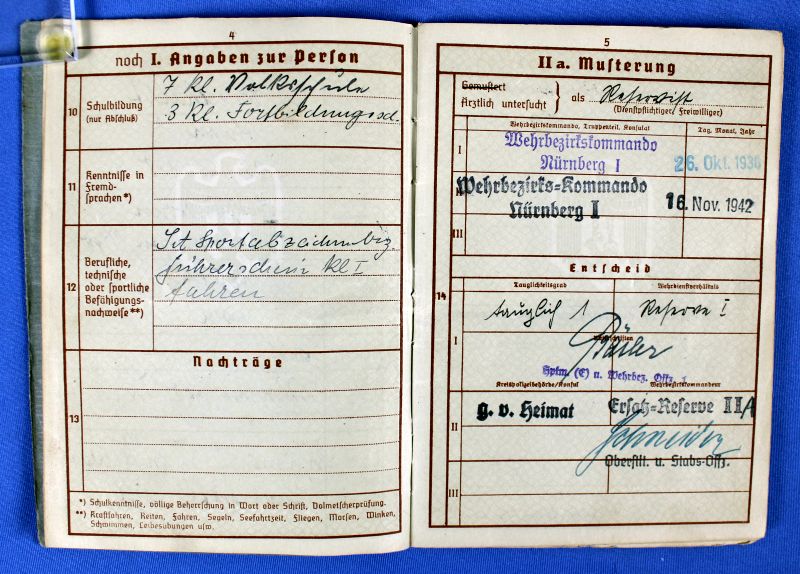 4
noch I. Angaben zur Person
10
Schulbildung
(nur Abschluß)
7 Kl. Volksschule
3 Kl. Fortbildungssch.
11
Kenntnisse in
Fremd-
sprachen *)
12
Berufliche,
technische
oder sportliche
Befähigungs-
nachweise **)
SA Sportabzeichen
Führerschein Kl I
fahren
Nachträge
13
*) Schulkenntnisse, völlige Beherrschung in Wort oder Schrift, Dolmetscherprüfung.
**) Kraftfahren, Reiten, Fahren, Segeln, Seefahrtzeit, Fliegen, Morsen, Winken,
Schwimmen, Leibesübungen usw.
5
IIa. Musterung
Gemustert
Ärztlich untersucht } als Reservist
(Dienstpflichtiger, Freiwilliger)
Wehrbezirkskommando, Truppenteil, Konsulat
Tag, Monat, Jahr
I
Wehrbezirkskommando
Nürnberg I
26. Okt. 1936
Wehrbezirks-Kommando
Nürnberg I
16. Nov. 1942
III
14
Entscheid
Tauglichkeitsgrad
Wehrdienstverhältnis
I
tauglich 1
Reserve I
Hptm. (E) u. Wehrbez. Offz. 1
Kreispolizeibehörde/Konsul
Wehrbezirkskommandeur
II
g. v. Heimat
Ersatz-Reserve II/A
Schneider
Oberstlt. u. Stabs-Offz.
III